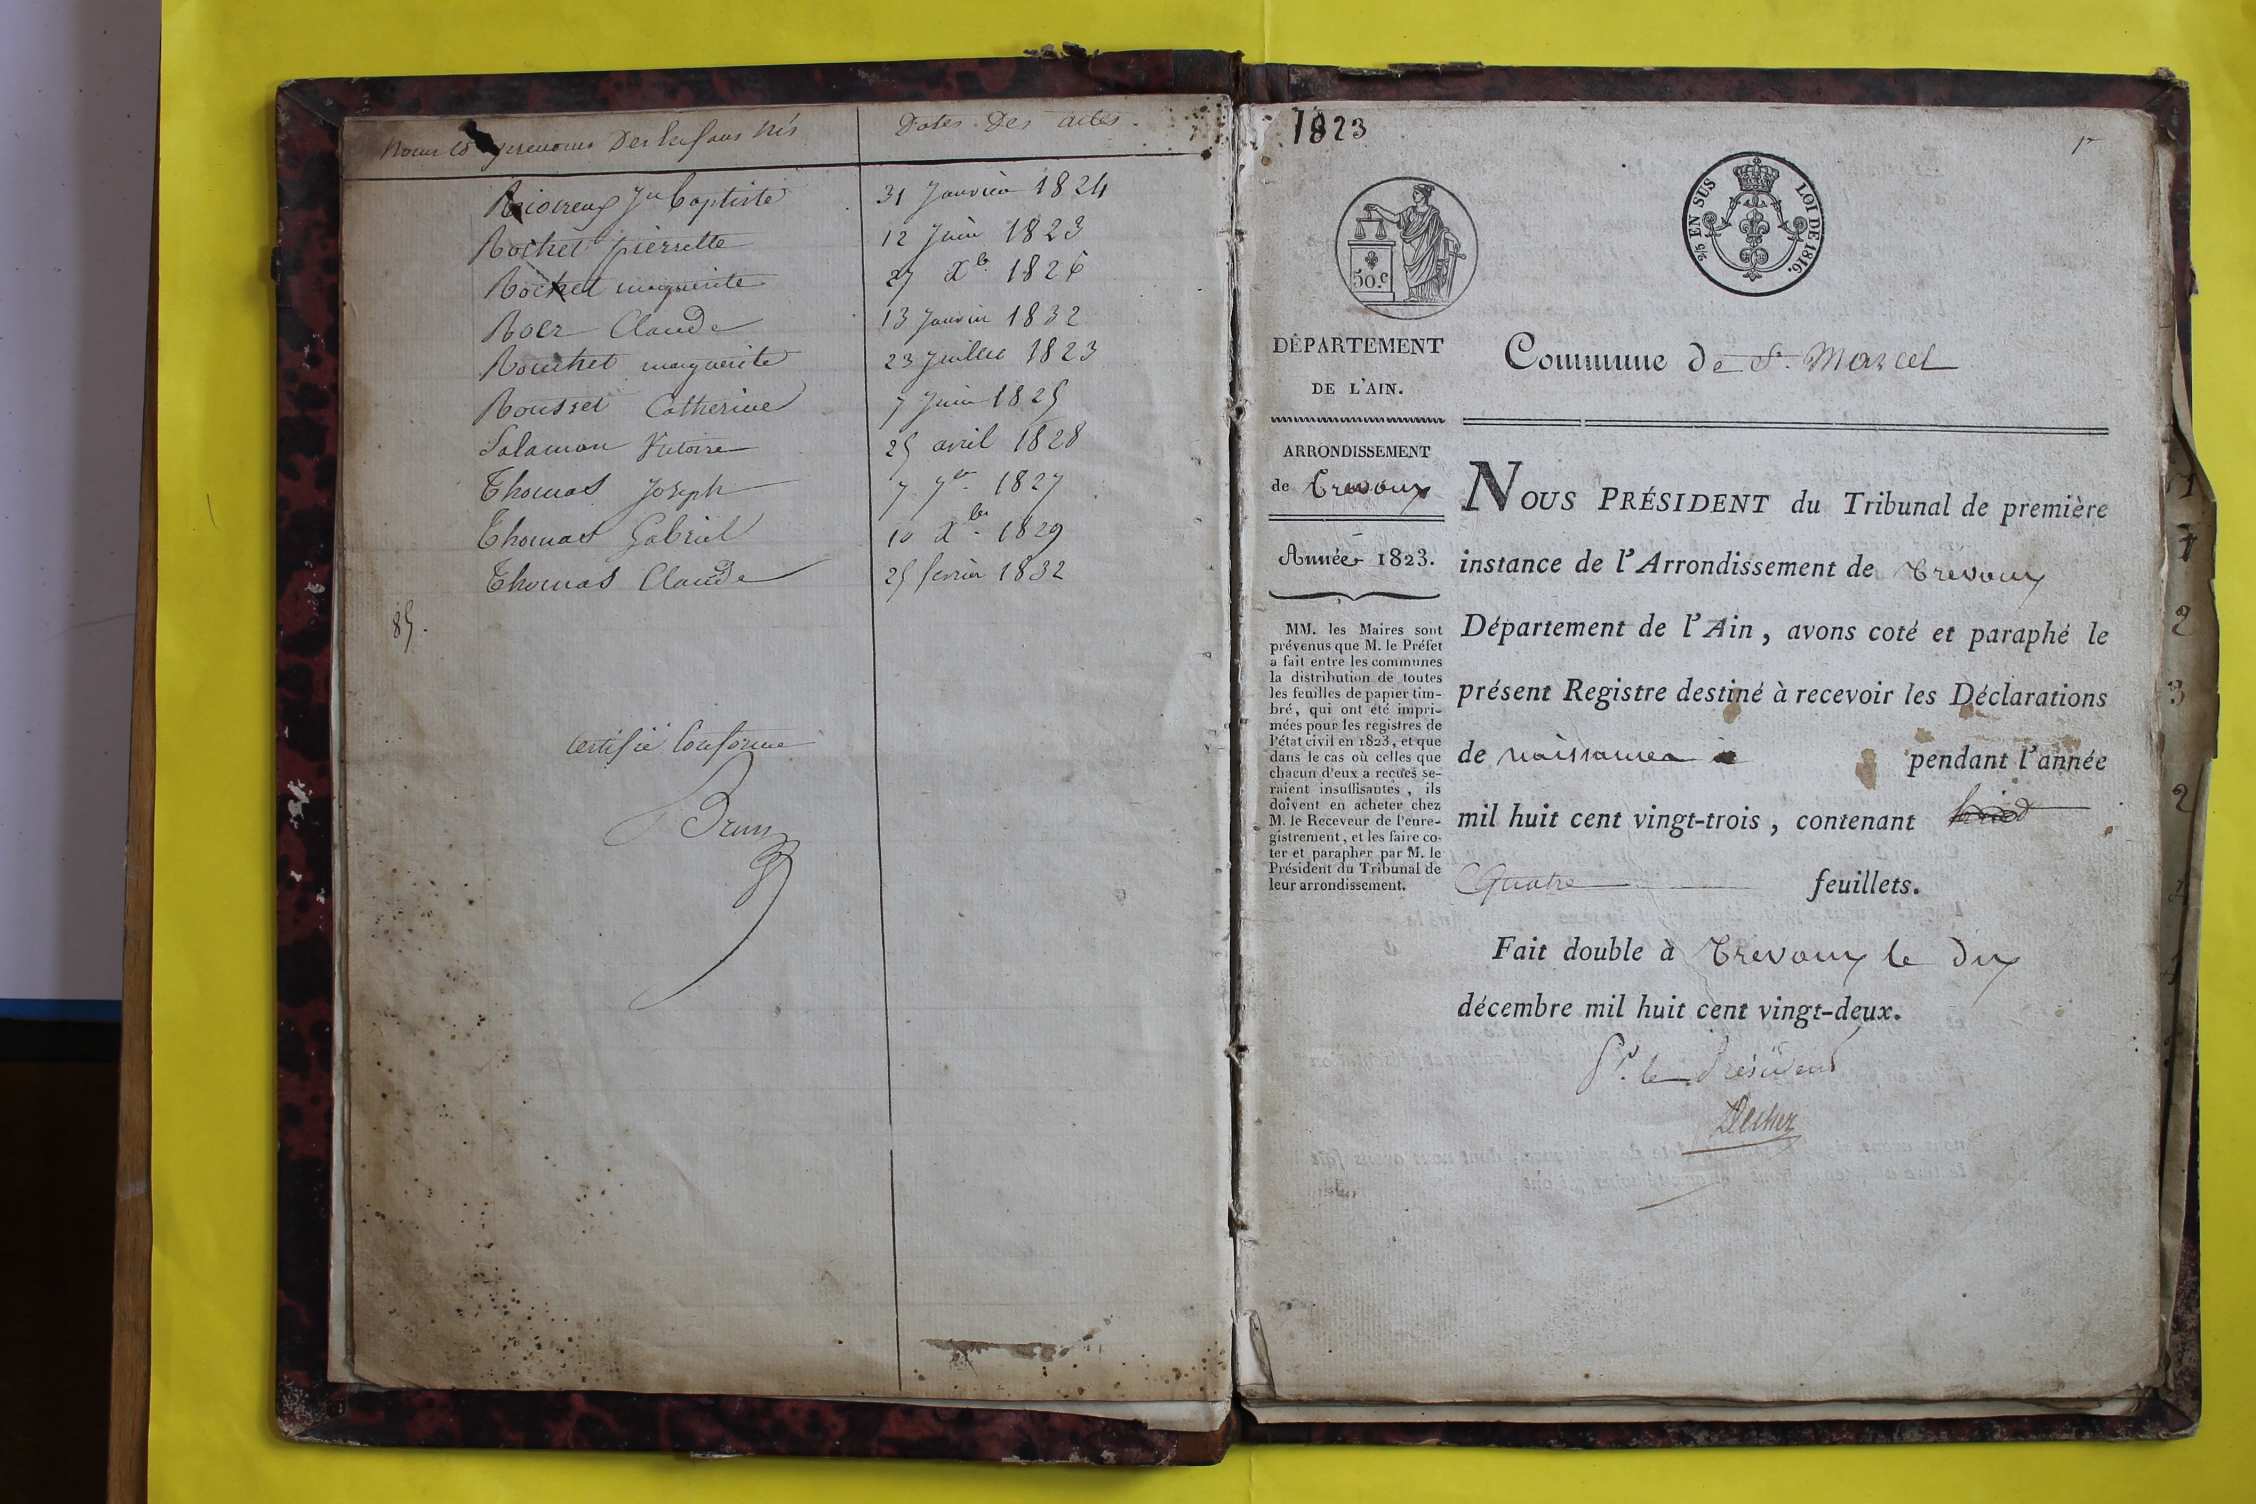 Noms et prenoms Des Enfans Nés
Dates Des actes
Rioureux Jn Baptiste 31 Janvier 1824
Rochet pierrette 12 Juin 1823
Rochet marguerite 27 Xb. 1826
Roer Claude 13 Janvier 1832
Rouchet marguerite 23 Juillet 1823
Rousset Catherine 7 Juin 1825
Salamon Victoire 25 avril 1828
Thomas Joseph 7 7br 1827
Thomas Gabriel 10 Xbre 1829
Thomas Claude 25 fevrier 1832
85.
Certifié Conforme
Brun
1823
50.c
2/5 EN SUS LOI DE 1816.
DÉPARTEMENT
DE L'AIN.
ARRONDISSEMENT
de Trevoux
Année 1823.
MM. les Maires sont
prévenus que M. le Préfet
a fait entre les communes
la distribution de toutes
les feuilles de papier tim-
bré, qui ont été impri-
mées pour les registres de
l'état civil en 1823, et que
dans le cas où celles que
chacun d'eux a reçues se-
raient insuffisantes, ils
doivent en acheter chez
M. le Receveur de l'enre-
gistrement, et les faire co-
ter et parapher par M. le
Président du Tribunal de
leur arrondissement.
Commune de St. Marcel
NOUS PRÉSIDENT du Tribunal de première
instance de l'Arrondissement de Trevoux
Département de l'Ain, avons coté et paraphé le
présent Registre destiné à recevoir les Déclarations
de naissances pendant l'année
mil huit cent vingt-trois, contenant
Quatre feuillets.
Fait double à Trevoux le dix
décembre mil huit cent vingt-deux.
Pr. le Président